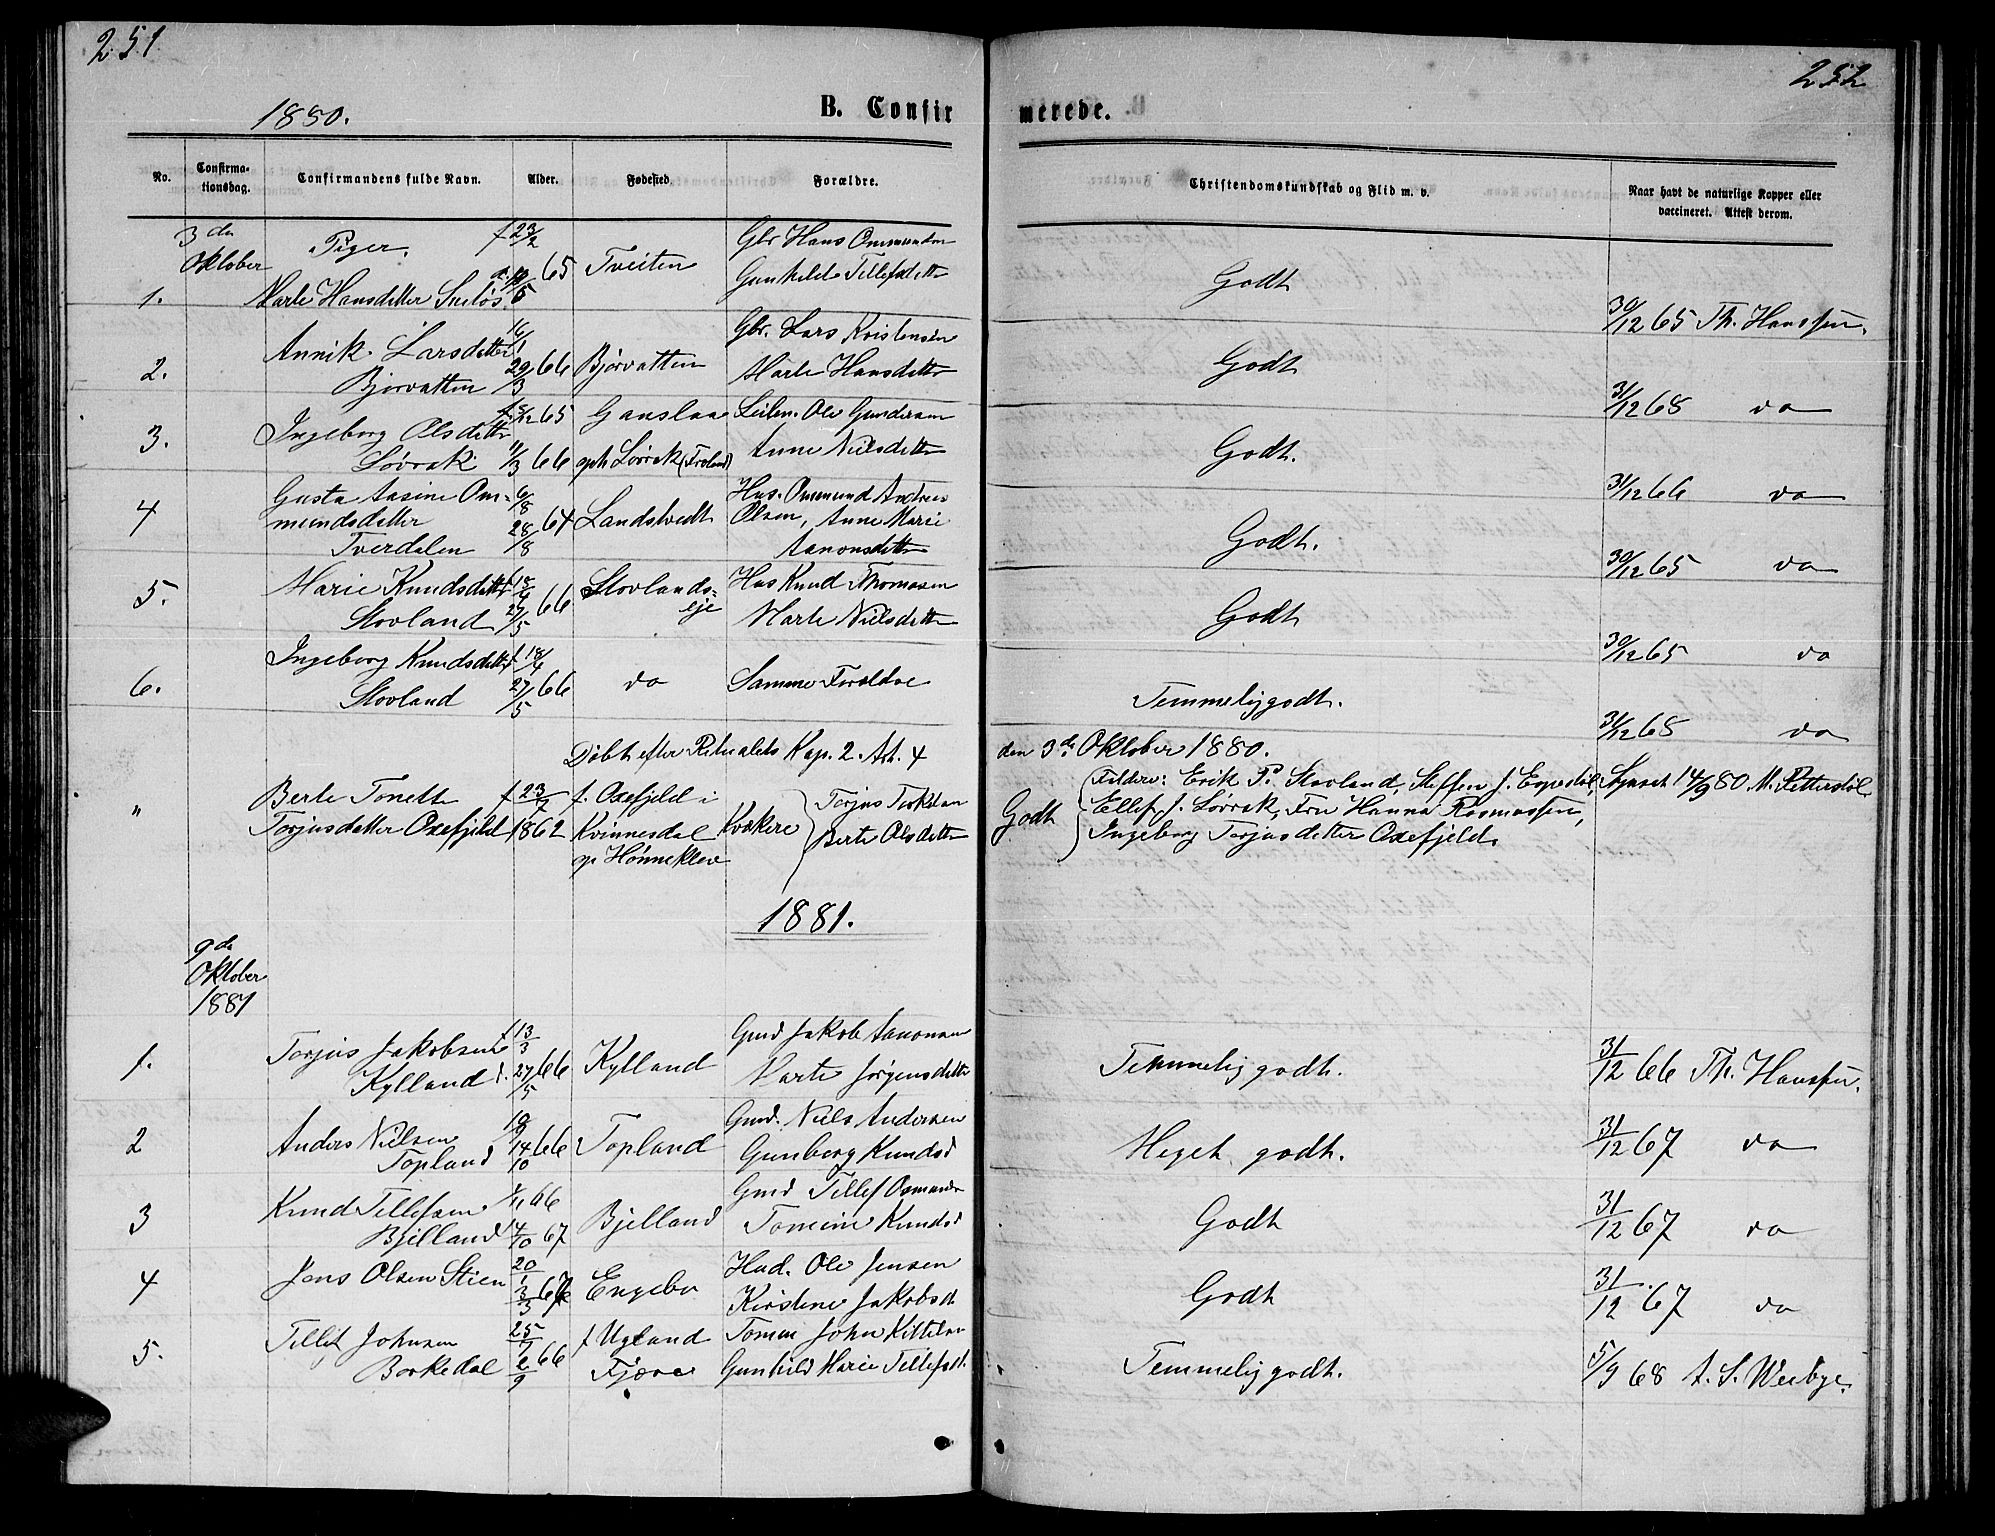 251
252
1880.
B. Confir
merede.
No.
Confirma-
tionsdag.
Confirmandens fulde Navn.
Alder.
Fødested.
Forældre.
Christendomskundskab og Flid m. v.
Naar havt de naturlige Kopper eller
vaccineret. Attest derom.
3 die
Oktober
Piger.
1. Marte Hansdetter
f 23/2 65
Tveiten
Gbr Hans Ommundsen
Gunhild Tellefsdetter
Godt
30/12 65 Th. Hanssen.
2. Annik Larsdetter
Bjorvatten
16/1
29/3 66
Bjorvatten
Gbr. Lars Kristensen
Marte Hansdetter
Godt
31/12 68 do
3. Ingeborg Olsdetter
Lövrak
f. 5/12 65
11/3 66
Ganslaa
oph Lövrak (Froland)
Leilen. Ole Gundersen
Anne Nielsdetter
Godt.
31/12 66 do
4 Gusta Aasine Om-
mundsdatter
Tverdalen
6/8
28/8 64
Landstvedt
Hus. Ommund Andreas
Olsen, Anne Marie
Aanonsdetter
Godt.
30/12 65 do
5. Marie Knudsdetter
Stovland
f 18/4
27/5 66
Stovlands-
eje
Hus Knud Thomasen
Marte Nielsdetter
Godt
30/12 65 do
6. Ingeborg Knudsdetter
Stovland
f 18/4
27/5 66
do
Samme Foreldre
Temmelig godt.
31/12 68 do
Döbt efter Ritualets Kap. 2. Art. 4
den 3die Oktober 1880.
" Berte Tonette
Torjusdatter Oxefjeld
f 23/2
1862
f. Oxefjeld i
Kvinnesdal
op Hönneklev
Kvækere
Torjus Terkelsen
Berte Olsdetter
Godt
Faddere: Erik P. Stovland, Steffen J. Espestöl,
Ellef J. Lövrak, Fru Hanna Rasmussen,
Ingeborg Torjusdetter Oxefjeld.
Synset 14/9 80 M. Pettersöl
1881.
9de
Oktober
1881
1. Torjus Jakobsen
Kylland
f 13/3
d. 27/5 66
Kylland
Gmd Jakob Aanonsen
Marte Jörgensdetter
Temmelig godt.
31/12 66 Th. Hanssen.
2 Anders Nielsen
Topland
14/10 66
Topland
Gmd. Niels Andersen
Gunborg Knudsd
Meget godt.
31/12 67 do
3 Knud Tellefsen
Bjelland
1/11 66
14/10 67
Bjelland
Gmd Tellef Osmunds
Tomine Knudsd
Godt
31/12 67 do
4 Jens Olsen Stien
20/1
3/3 67
Engebo
Hud. Ole Jensen
Kirstine Jakobsdt
Godt
31/12 67 do
5. Tellef Johnsen
Borkedal
25/7
2/9 66
f Ugland
Fjære
Tömm John Kittelsen
Gunhild Marie Tellefsdt.
Temmelig godt.
5/9 68 A. S. Weibye.